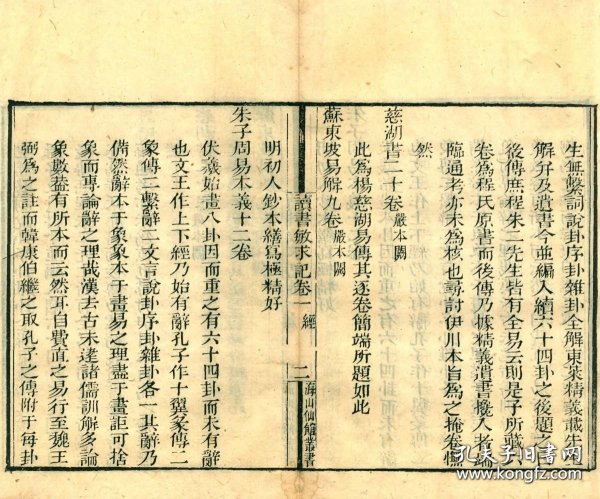 生無繫詞說卦序卦雜卦全解東萊精義載先生
解并及遺書今並編入續六十四卦之後題之曰
後傳庶程朱二先生皆有全易云則是予所藏六
卷為程氏原書而後傳乃據精義遺書攙入者端
臨通考亦未為核也尋討伊川本旨為之掩卷憮
然
慈湖書二十卷 嚴本闕
此為楊慈湖易傳其逐卷簡端所題如此
蘇東坡易解九卷 嚴本闕
讀書敏求記卷一 經
二
海山仙館叢書
明初人鈔本繕寫極精好
朱子周易本義十二卷
伏羲始畫八卦因而重之有六十四卦而未有辭
也文王作上下經乃始有辭孔子作十翼彖傳二
象傳二繫辭二文言說卦序卦雜卦各一其辭乃
備然辭本于象象本于畫易之理盡于畫詎可捨
象而專論辭之理哉漢去古未遠諸儒訓解多論
象數蓋有所本而云然耳自費直之易行至魏王
弼為之註而韓康伯繼之取孔子之傳附于每卦
孔夫子旧书网
book.kongfz.com